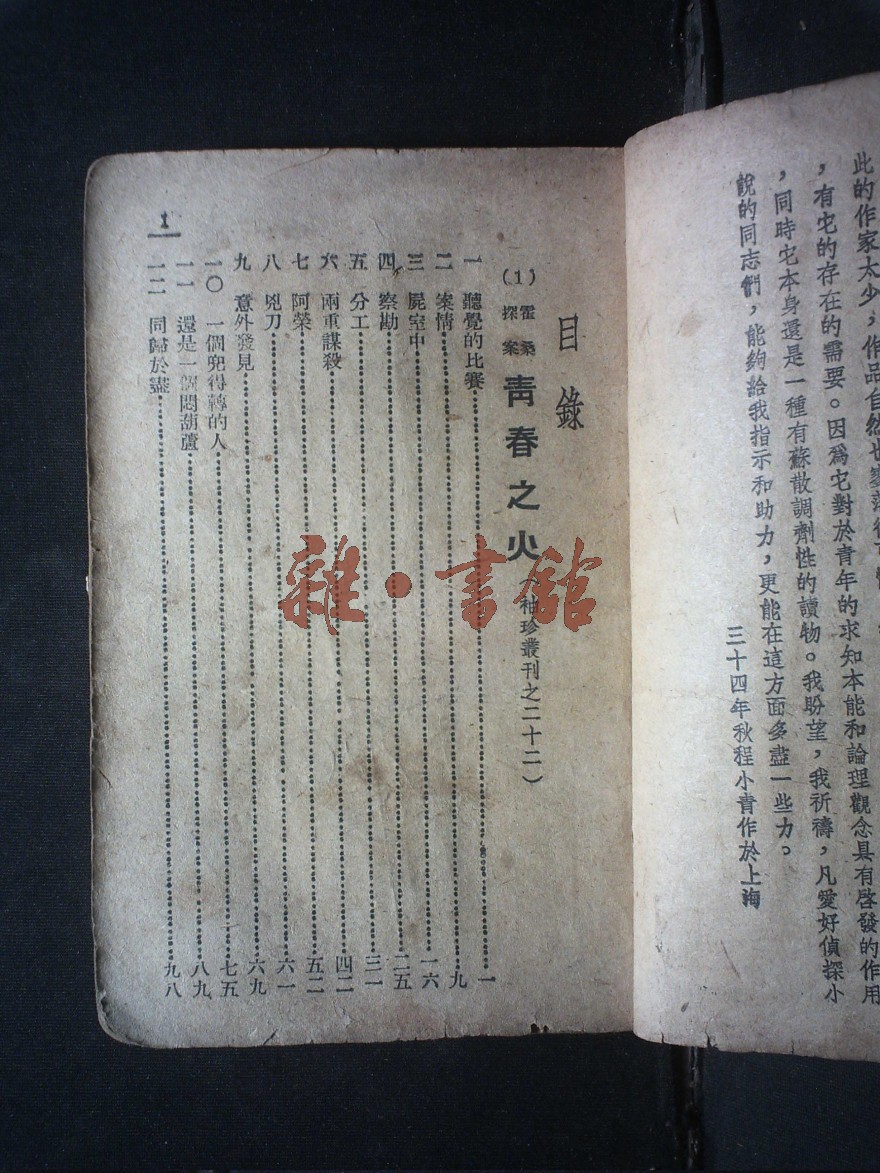 此的作家太少，作品自然也
，有它的存在的需要。因爲它對於青年的求知本能和論理觀念具有啓發的作用
，同時它本身還是一種有蘇散調劑性的讀物。我盼望，我祈禱，凡愛好偵探小
說的同志們，能夠給我指示和助力，更能在這方面多盡一些力。
三十四年秋程小青作於上海
目錄
(1) 霍桑探案 青春之火（袖珍叢刊之二十二）
一 聽覺的比賽 一
二 案情 九
三 屍室中 一六
四 察勘 二五
五 分工 三一
六 兩重謀殺 四二
七 阿榮 五二
八 兇刀 六一
九 意外發見 六九
一〇 一個兜得轉的人 七五
一一 還是一個悶葫蘆 八九
一二 同歸於盡 九八
1
雜·書館